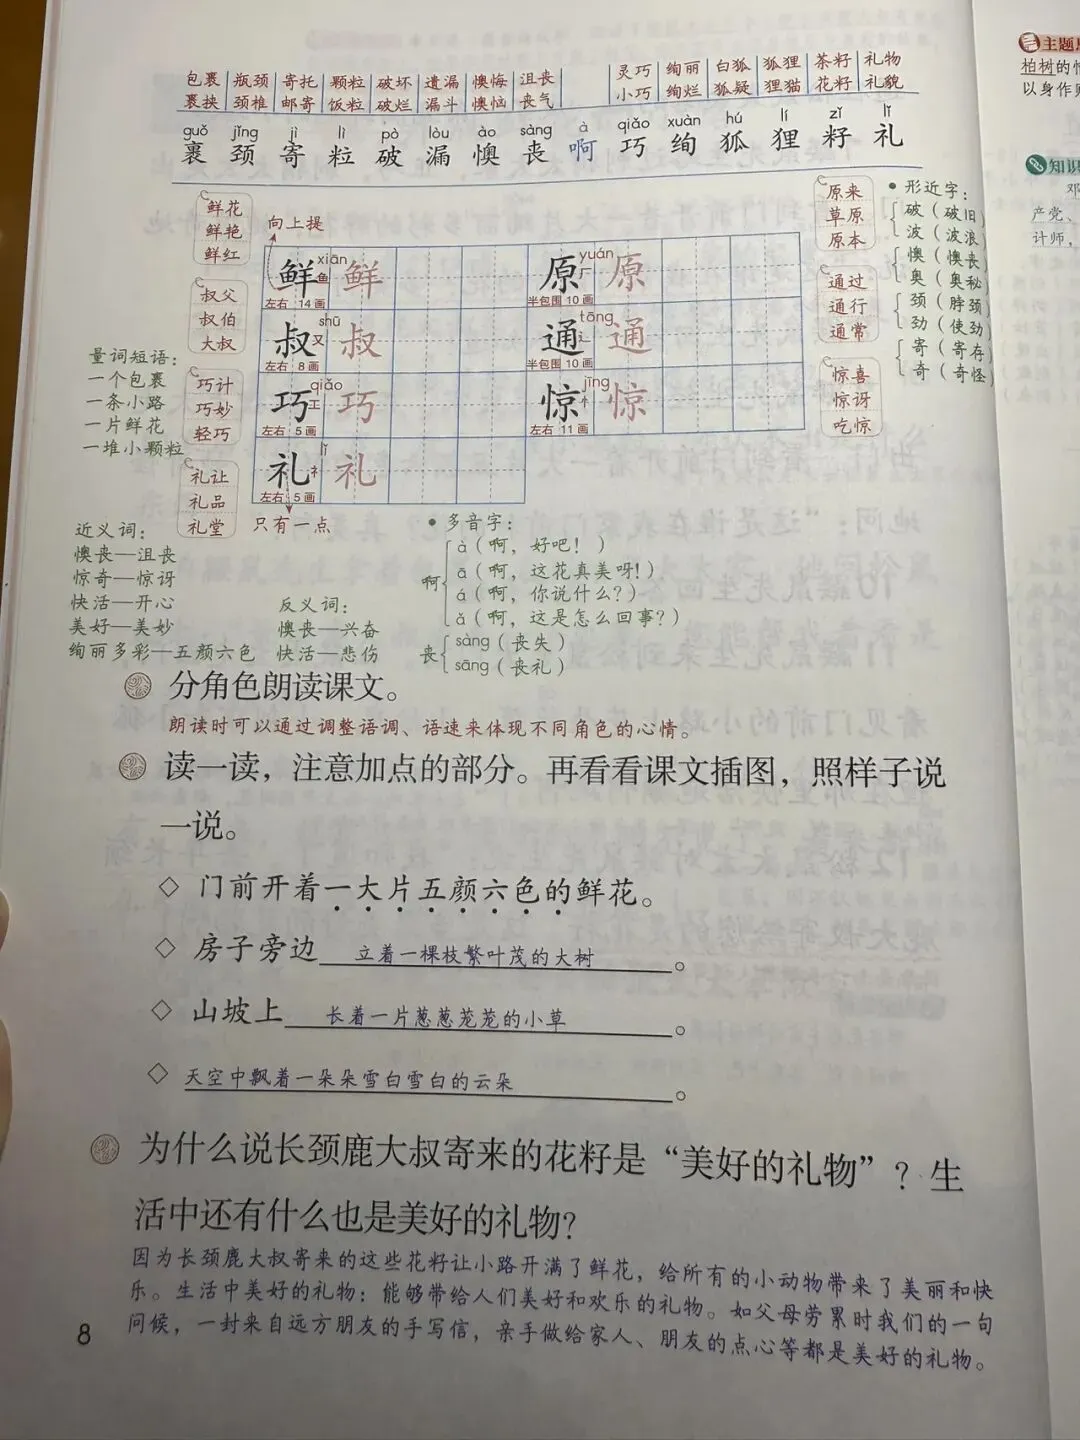 包裹 瓶颈 寄托 颗粒 破坏 遗漏 懊悔 沮丧 灵巧 绚丽 白狐 狐狸 茶籽 礼物
裹挟 颈椎 邮寄 饭粒 破烂 漏斗 懊恼 丧气 小巧 绚烂 狐疑 狸猫 花籽 礼貌
guǒ jǐng jì lì pò lòu ào sàng à qiǎo xuàn hú lí zǐ lǐ
裹 颈 寄 粒 破 漏 懊 丧 啊 巧 绚 狐 狸 籽 礼
鲜花
鲜艳
鲜红
向上提
xiān
鲜 鱼 鲜
左右 14画
yuán
原 厂 原
半包围 10画
原来
草原
原本
叔父
叔伯
大叔
shū
叔 又 叔
左右 8画
tōng
通 辶 通
半包围 10画
通过
通行
通常
巧计
巧妙
轻巧
qiǎo
巧 工 巧
左右 5画
jīng
惊 忄 惊
左右 11画
惊喜
惊讶
吃惊
礼让
礼品
礼堂
lǐ
礼 礻 礼
左右 5画
只有一点
• 形近字：
破（破旧）
波（波浪）
懊（懊丧）
奥（奥秘）
颈（脖颈）
劲（使劲）
寄（寄存）
奇（奇怪）
量词短语：
一个包裹
一条小路
一片鲜花
一堆小颗粒
近义词：
懊丧—沮丧
惊奇—惊讶
快活—开心
美好—美妙
绚丽多彩—五颜六色
反义词：
懊丧—兴奋
快活—悲伤
• 多音字：
啊
à（啊，好吧！）
ā（啊，这花真美呀！）
á（啊，你说什么？）
ǎ（啊，这是怎么回事？）
丧
sàng（丧失）
sāng（丧礼）
分角色朗读课文。
朗读时可以通过调整语调、语速来体现不同角色的心情。
读一读，注意加点的部分。再看看课文插图，照样子说
一说。
◇ 门前开着一大片五颜六色的鲜花。
◇ 房子旁边 立着一棵枝繁叶茂的大树 。
◇ 山坡上 长着一片葱葱茏茏的小草 。
◇ 天空中飘着一朵朵雪白雪白的云朵 。
为什么说长颈鹿大叔寄来的花籽是“美好的礼物”？生
活中还有什么也是美好的礼物？
因为长颈鹿大叔寄来的这些花籽让小路开满了鲜花，给所有的小动物带来了美丽和快
乐。生活中美好的礼物：能够带给人们美好和欢乐的礼物。如父母劳累时我们的一句
问候，一封来自远方朋友的手写信，亲手做给家人、朋友的点心等都是美好的礼物。
8
主题
柏树的
以身作则
知识
邓
产党、
计师，